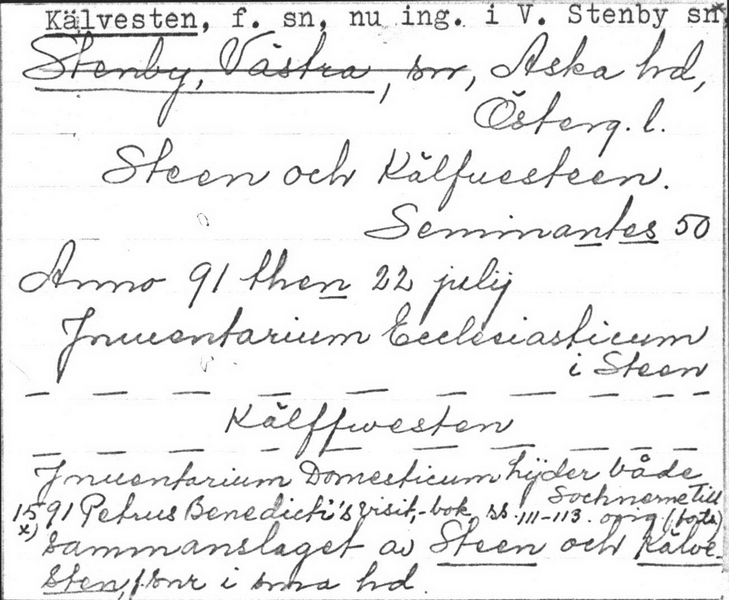 Kälvesten, f. sn, nu ing. i V. Stenby sn*
Stenby, Västra, sn, Aska hd,
Österg. l.
Steen och Kälfuesteen.
Seminantes 50
Anno 91 then 22 julij
Jnuentarium Ecclesiasticum
i Steen
Kälffwesten
Jnuentarium Domesticum hijder både
Sochnerne till
1591 Petrus Benedicti's visit.-bok ss. 111-113. orig (forts)
x) Sammanslaget av Steen och Kälve-
sten, f. snr i sma hd.